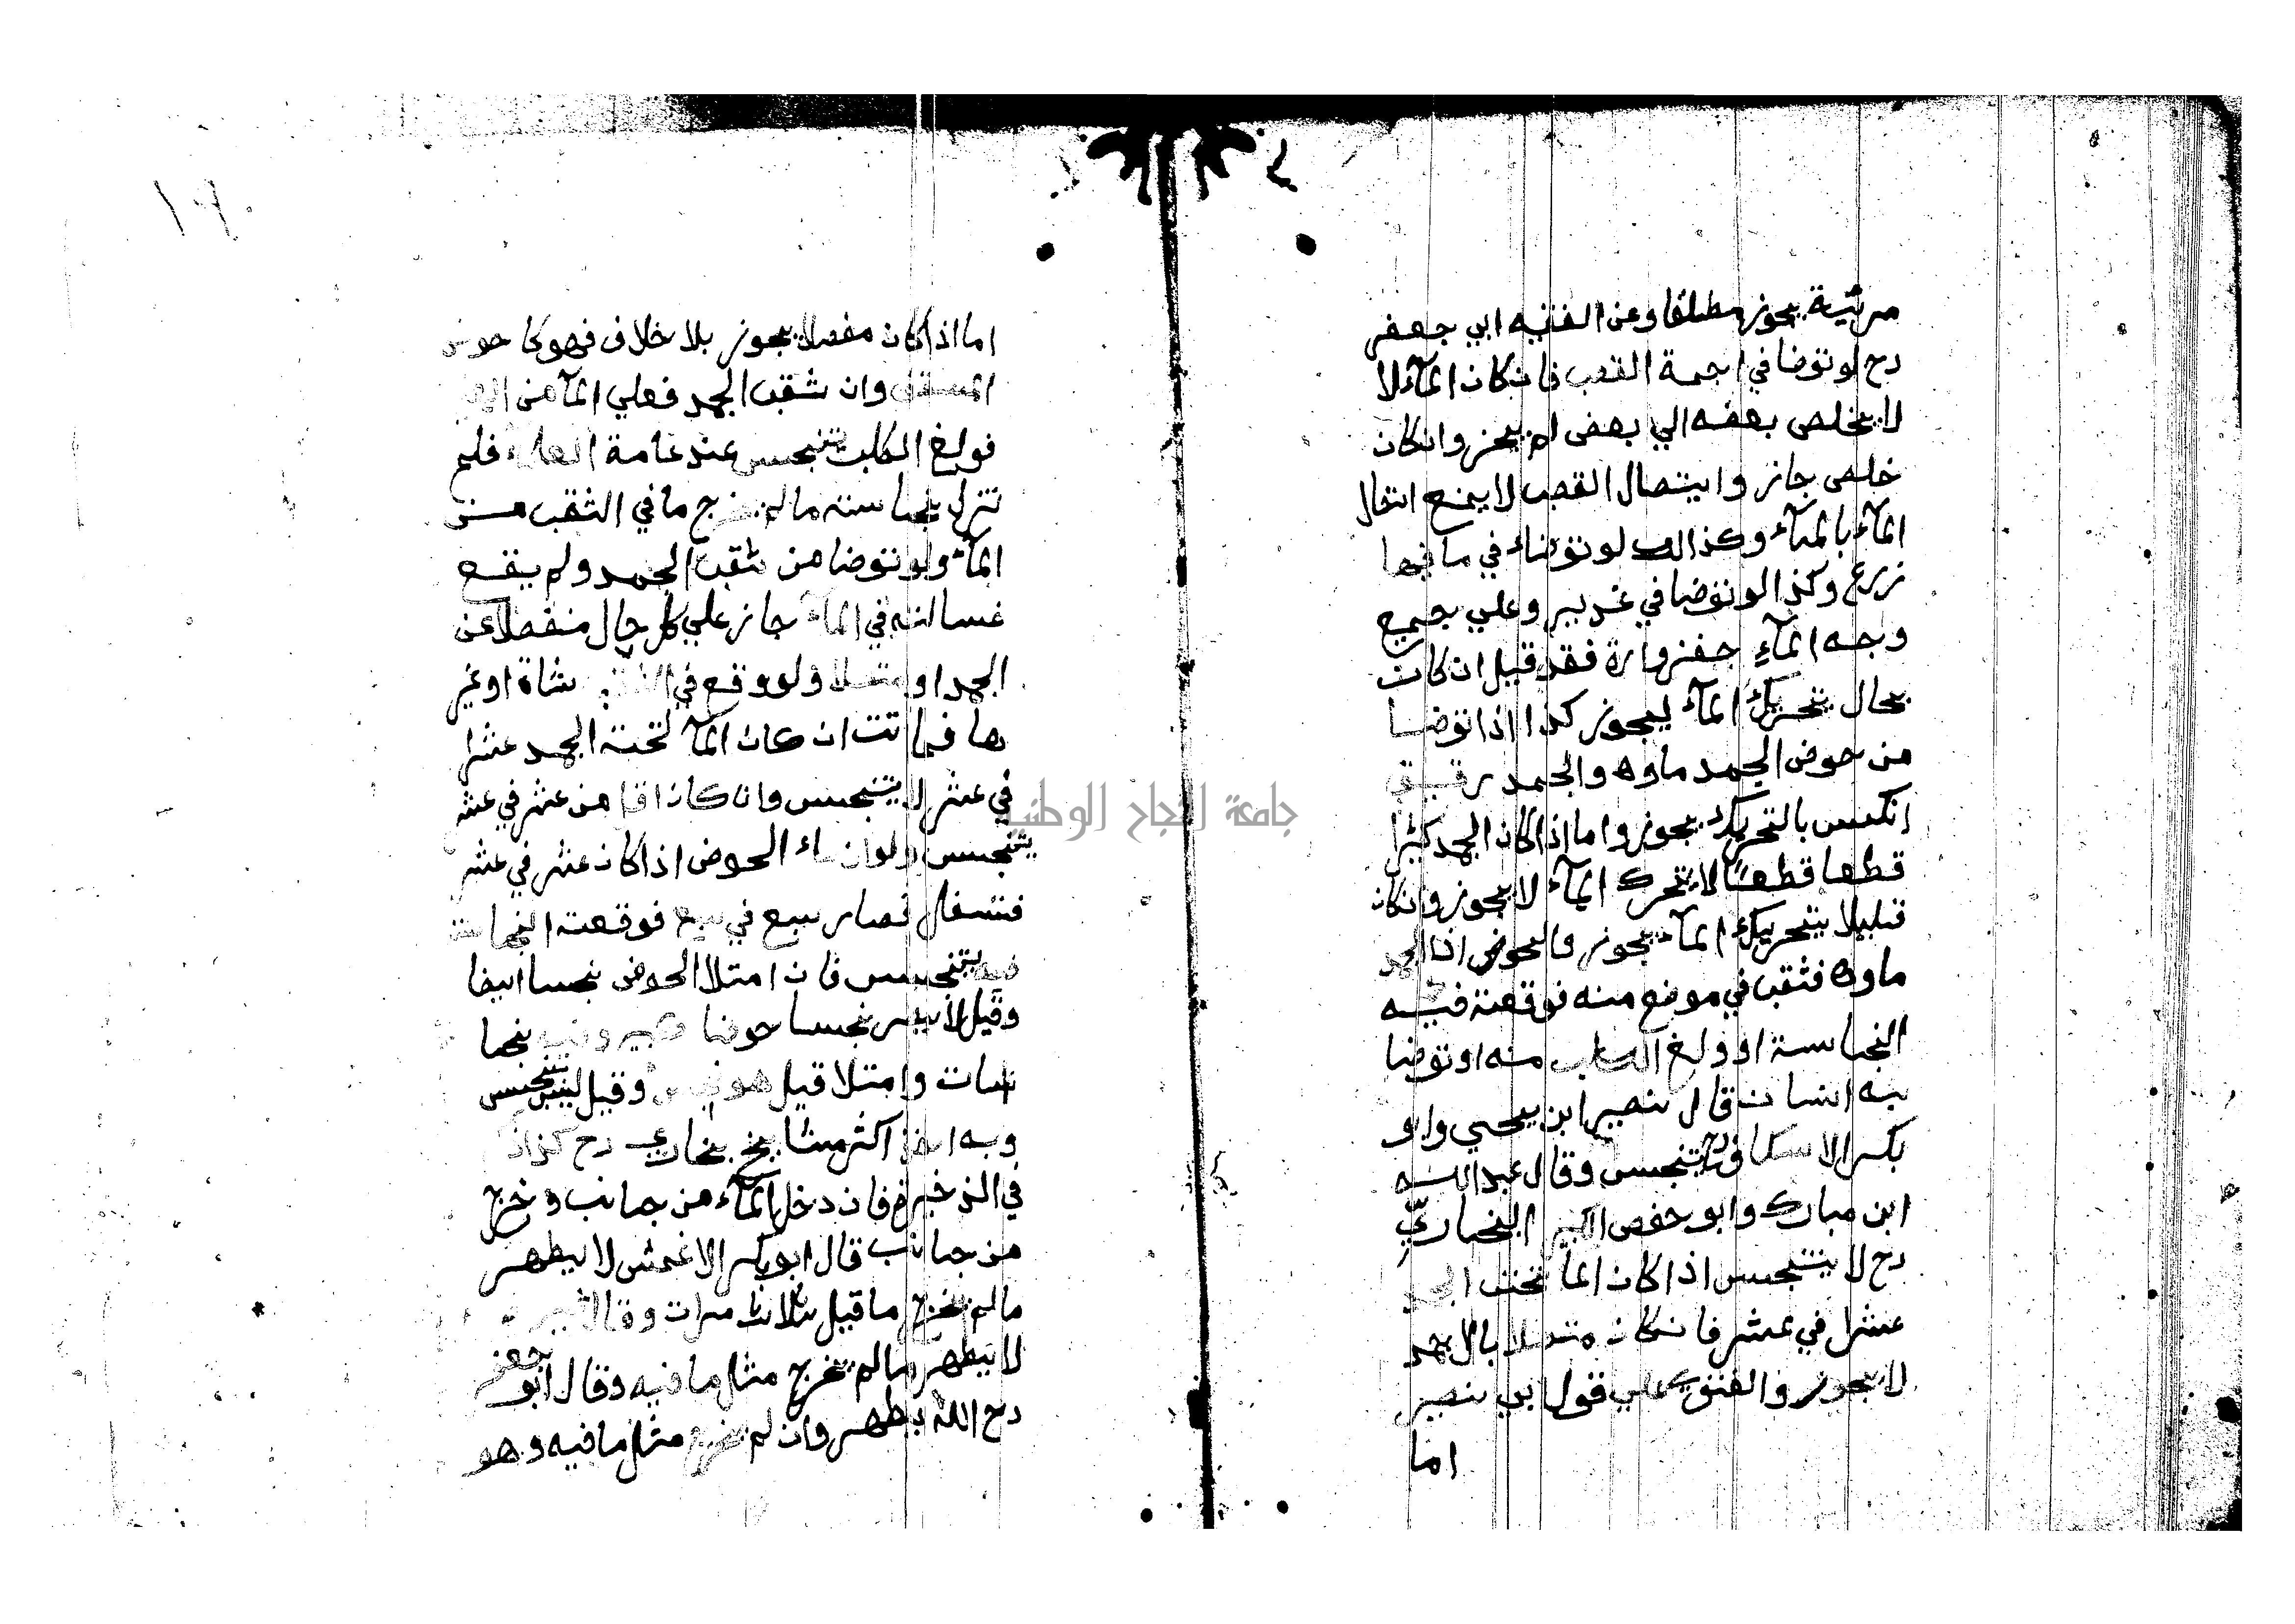 مرئية يجوز مطلقا وعن الفقيه ابي جعفر
رح لو توضا في اجمة القصب فان كان المآء لا
لا يخلص بعضه الي بعض لم يجز وان كان
خلص جاز وايتصال القصب لا يمنع اتتصال
المآء بالمآء وكذالك لو توضاء في ما فيها
زرع وكذا لو توضا في غدير وعلي جميع
وجه المآء جفزوارة فقد قيل ان كان
بحال يتحريك المآء ليجوز كذا اذا توضا
من حوض الجمد ماوه والجمد رقيق
انكسر بالتحريك يجوز واما اذا كان الجمد كثيرا
قطعا قطعا لا يتحرك المآء لا يجوز وان كان
قليلا يتحريك المآء يجوز والحوض اذا الجمد
ماوه فثقب في موضع منه فوقعة فيه
النجاسة او ولغ الكلب منه او توضا
به انسان قال نصير ابن يحيي وابو
بكر الاسكاف يتنجس وقال عبد الله
ابن مبارك وابو حفص الكبير البخاري
رح لا يتنجس اذا كان الما تحت الجمد
عشرا في عشر فان كان متصلا بالجمد
لا يجوز والفتوي علي قول ابي نصير
اما
١٩
اما اذا كان مفصلا يجوز بلا خلاف فهو كا حوض
المسقف وان شقب الجمد فعلي المآ من
فولغ الكلب يتنجس عند عامة العلماء فلم
تنزل بنجاسته ما لم يخرج ما في الثقب من
المآء ولو توضا من ثقب الجمد ولم يقع
غسالته في المآء جاز علي كل حال منفصلا عن
الجمد او متصلا ولو وقع في الثقب شاة او غير
ها فماتت ان كان المآ لتحت الجمد عشرا
في عشر لا يتنجس وان كان اقل من عشر في عشر
يتنجس ولو ان ماء الحوض اذا كان عشر في عشر
فتسفل فصار سبع في سبع فوقعة النجاسة
فيه يتنجس فان امتلا الحوض نجسا ايضا
وقيل لا يصير نجسا حوضا كبير وفيه نجا
سات وامتلا قيل هو نجس وقيل ليس يتنجس
وبه اخذ اكثر مشايخ بخاري رح كذا
في الذخيرة فان دخل المآء من جانب و خرج
من جانب قال ابو بكر الاغمش لا يطهر
ما لم يخرج ما قيل ثلاث مرات وقال
لا يطهر ما لم يخرج مثل ما فيه وقال ابو جعفر
رح الله يطهر وان لم يخرج مثل ما فيه وهو
جامعة النجاح الوطنية